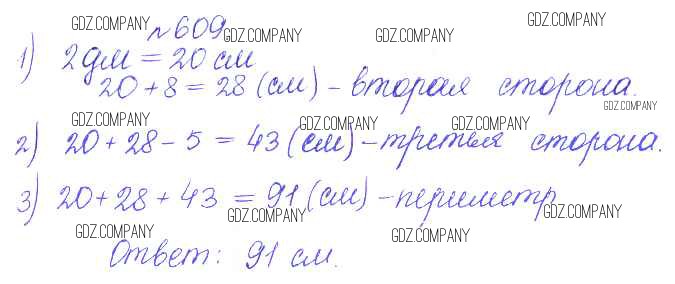 GDZ.COMPANY
№609
GDZ.COMPANY GDZ.COMPANY GDZ.COMPANY
1) 2дм = 20 см
20 + 8 = 28 (см) - вторая сторона.
GDZ.COMPANY
GDZ.COMPANY GDZ.COMPANY GDZ.COMPANY
2) 20 + 28 - 5 = 43 (см) - третья сторона.
3) 20 + 28 + 43 = 91 (см) - периметр
GDZ.COMPANY GDZ.COMPANY
GDZ.COMPANY GDZ.COMPANY
Ответ: 91 см.